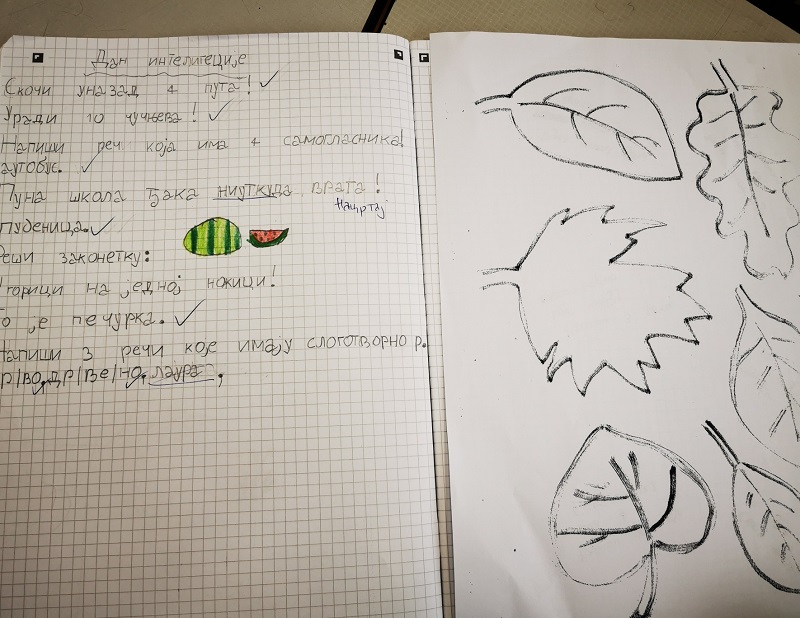 Дан интелигеције
Скочи уназад 4 пута!
Уради 10 чучњева!
Напиши реч која има 4 самогласника!
аутобус.
Пуна школа ђака ниуткуда врата!
Нацртај
лубеница.
еши законетку:
на једној ножици!
о је печурка.
Напиши 3 речи које имају слоготворно р.
р|во, др|ве|но, лаура.